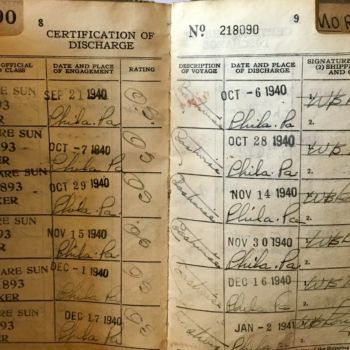 90
8
CERTIFICATION OF
DISCHARGE
OFFICIAL
CLASS
DATE AND PLACE
OF ENGAGEMENT
RATING
ARE SUN
893
KER
SEP 21 1940
Phila. Pa
ARE SUN
893
KER
OCT -7 1940
Phila. Pa
ARE SUN
1893
KER
OCT 29 1940
Phila. Pa.
ARE SUN
893
KER
NOV 15 1940
Phila. Pa
ARE SUN
893
KER
DEC -1 1940
Phila Pa
SUN
893
KER
DEC 17 1940
Phila Pa
No 218090
9
NO
DESCRIPTION
OF VOYAGE
DATE AND PLACE
OF DISCHARGE
SIGNATURE
(2) SHIPPI
AND
OCT -6 1940
Phila. Pa
Coastwise
OCT 28 1940
Phila. Pa
2.
Coastwise
NOV 14 1940
Phila. Pa
2.
Coastwise
NOV 30 1940
Phila. Pa
2.
Coastwise
DEC 16 1940
Phila. Pa
2.
Coastwise
JAN -2 1941
Phila. Pa
2.